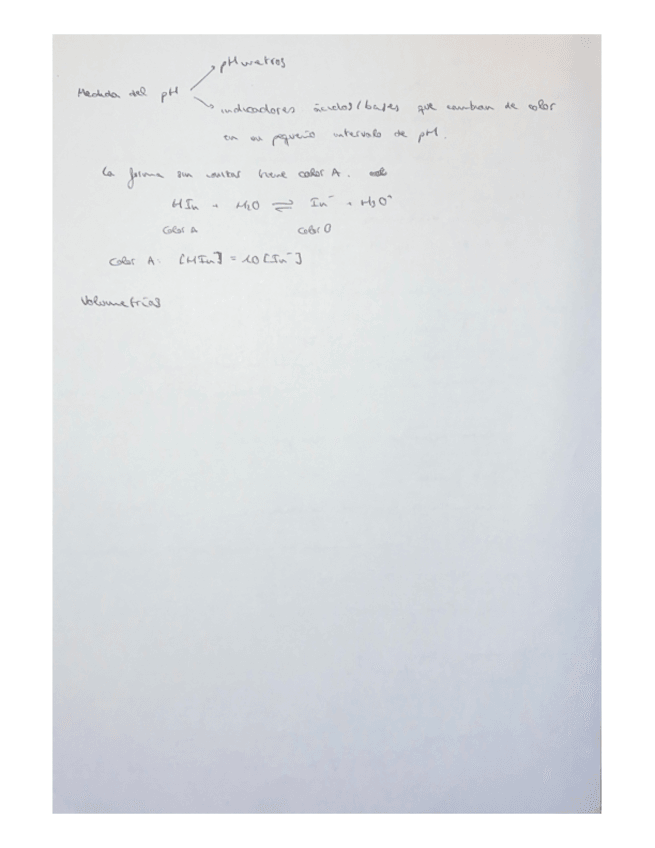 pHmetros
Medida del pH
indicadores ácidos/bases que cambian de color
en un pequeño intervalo de pH.
La forma sin ionizar tiene color A.
HIn + H2O ⇌ In⁻ + H3O⁺
Color A Color B
Color A: [HIn] = 10[In⁻]
Volumetrías